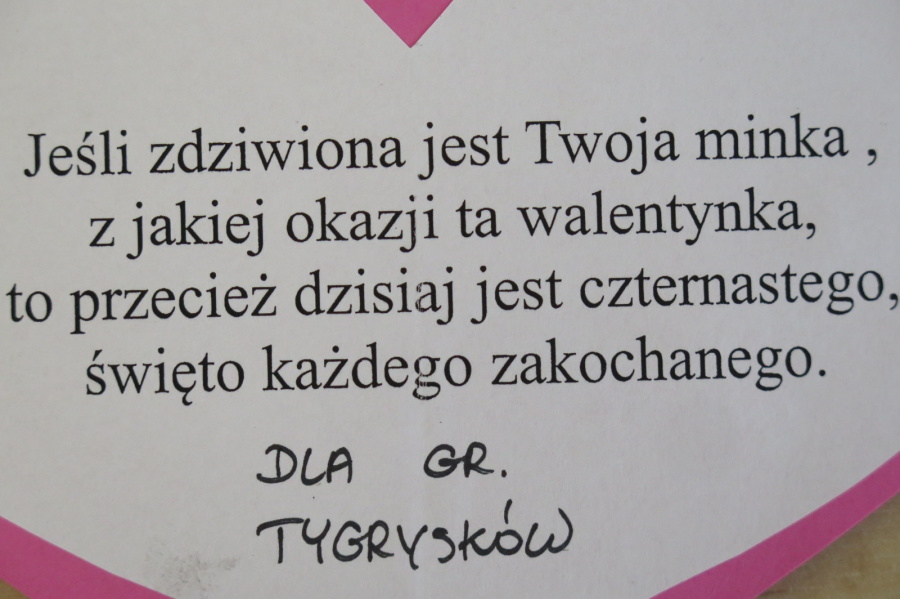 Jeśli zdziwiona jest Twoja minka ,
z jakiej okazji ta walentynka,
to przecież dzisiaj jest czternastego,
święto każdego zakochanego.
DLA GR.
TYGRYSKÓW